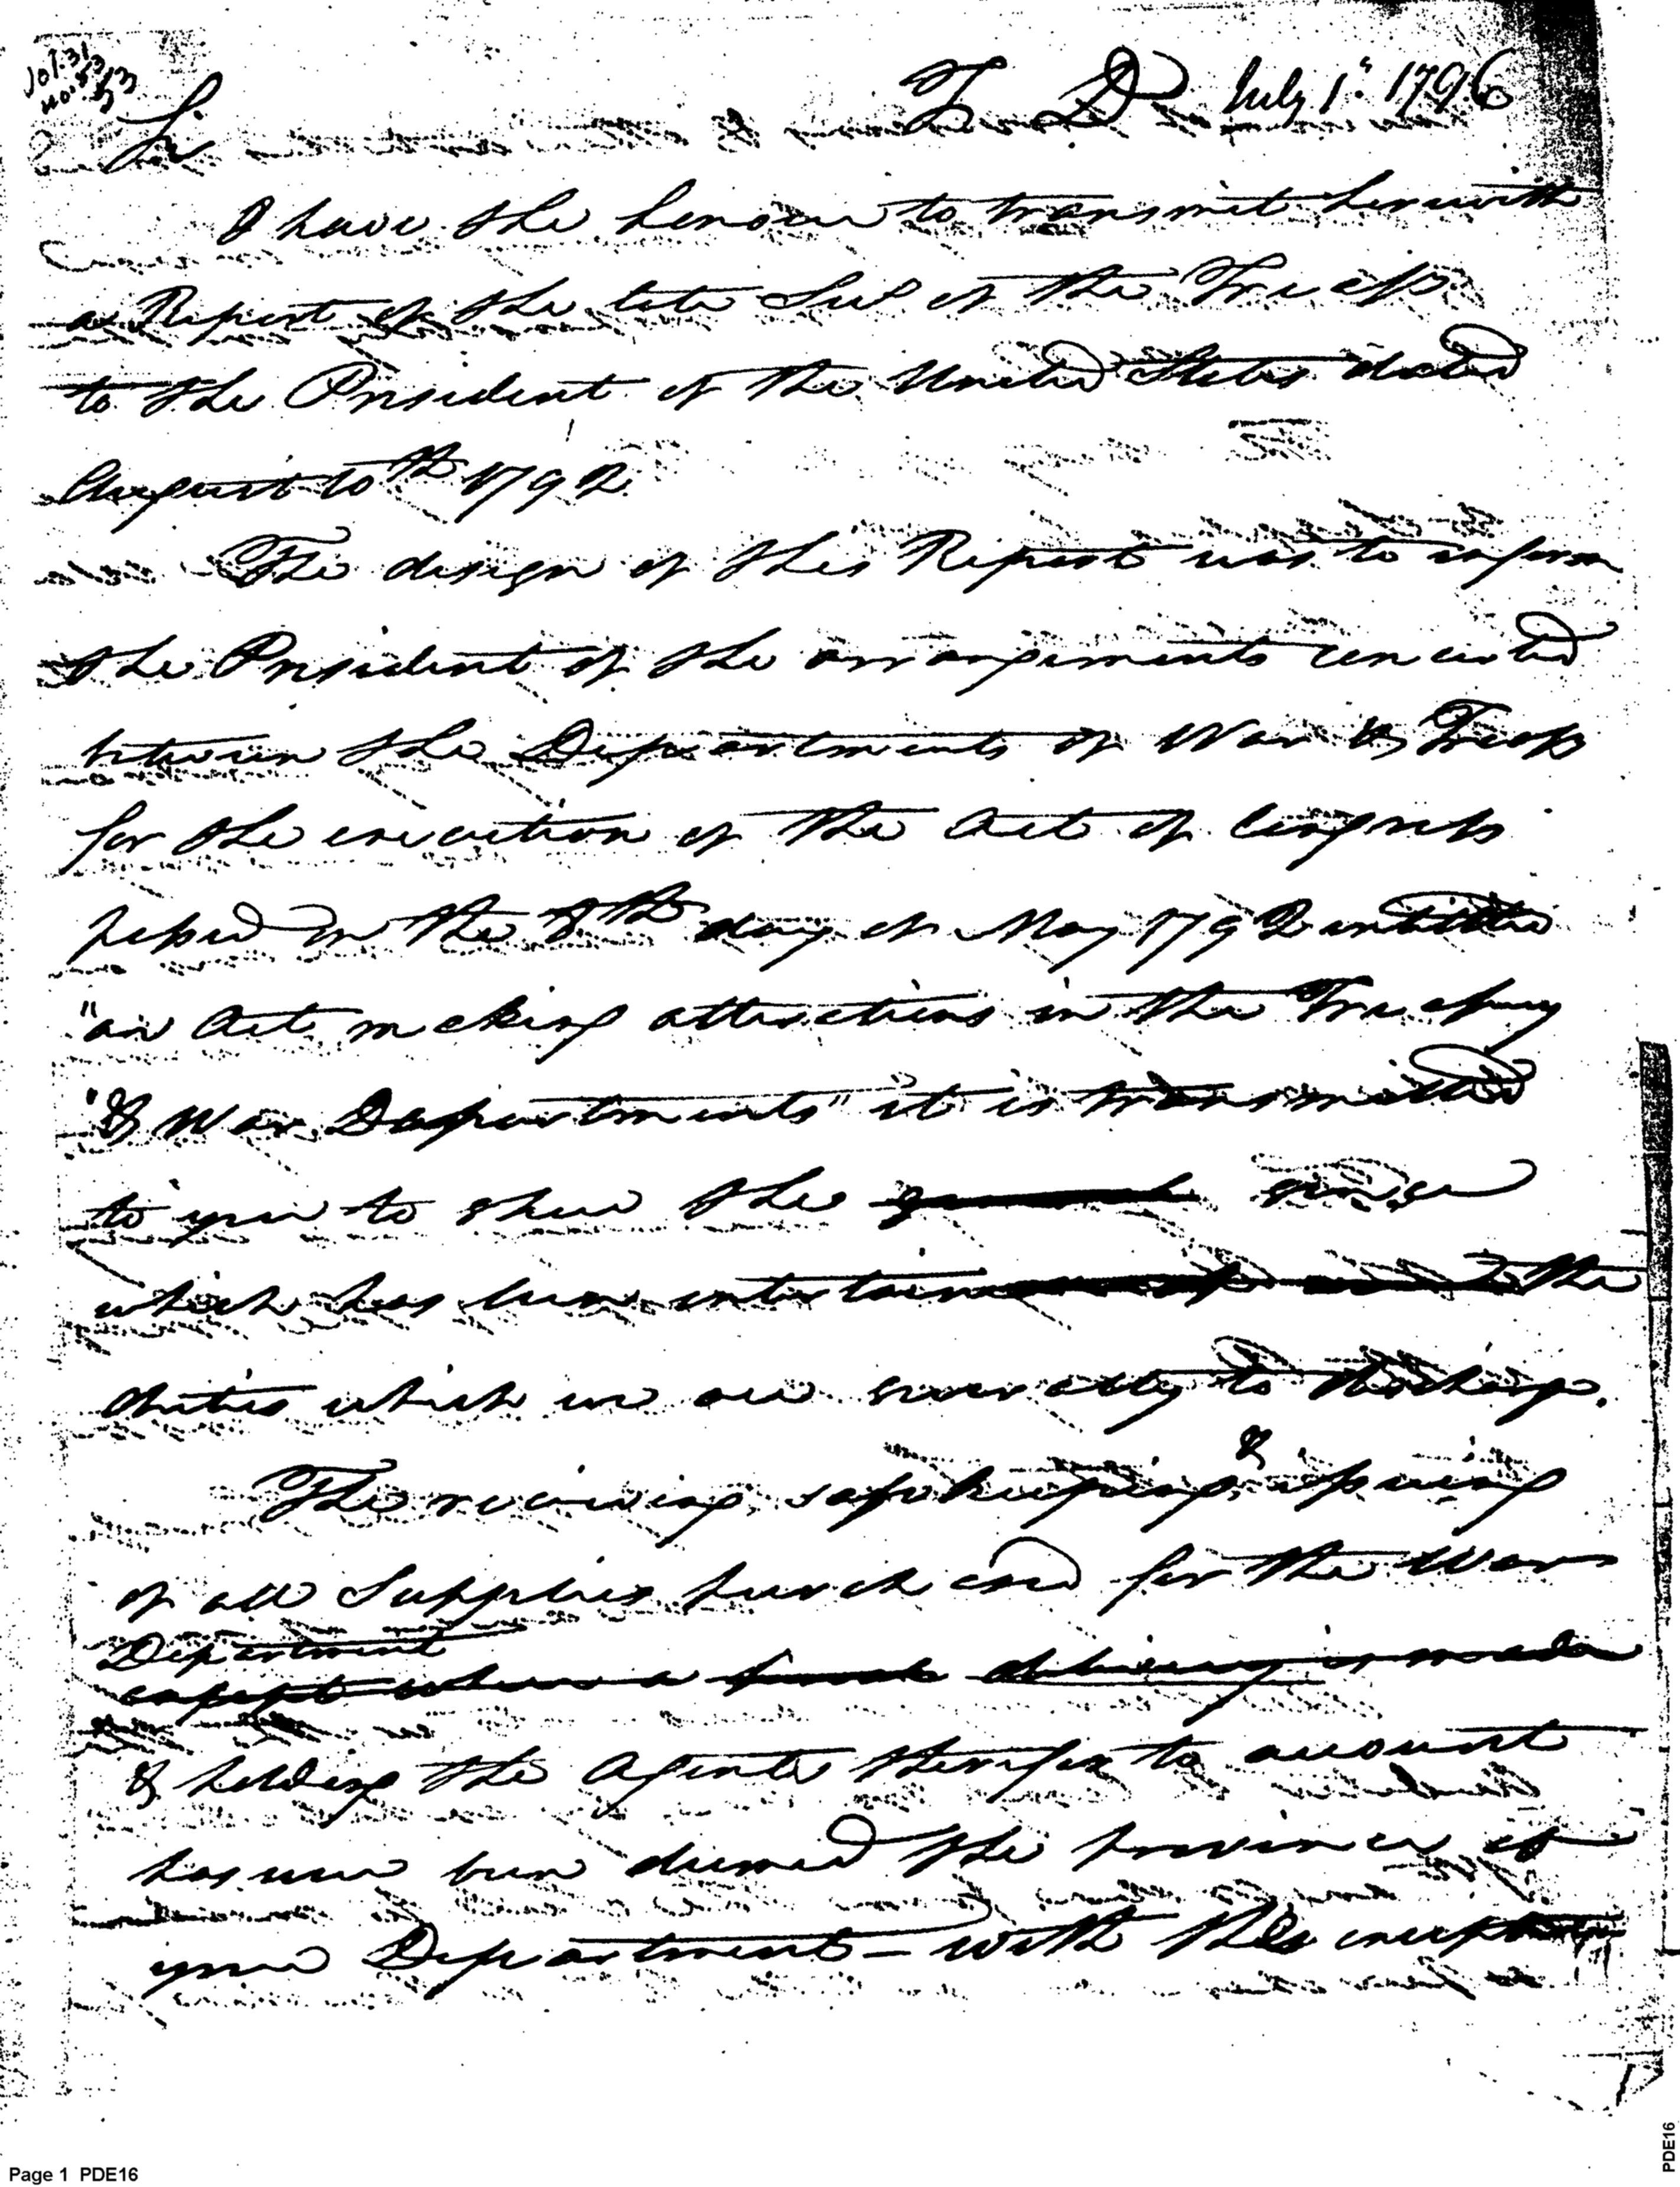 Vol. 31
No. 53
T D July 1st 1796
Sir
I have the honour to transmit herewith
a Report of the late Secy of the Treasy
to the President of the United States dated
August 10th 1792
The design of this Report was to inform
the President of the arrangements concerted
between the Departments of War & Treasy
for the execution of the Act of Congress
passed on the 8th day of May 1792 intitled
"an Act making alterations in the Treasury
"& War Departments" it is transmitted
to you to shew the
which has been entertain the
duties which we are severally to discharge.
The receiving, safekeeping & issuing
of all Supplies purchased for the War
Department
except where a delivery is made
& holding the Agents therefor to account
has been deemed the province of
your Department – with this exception
Page 1 PDE16
PDE16